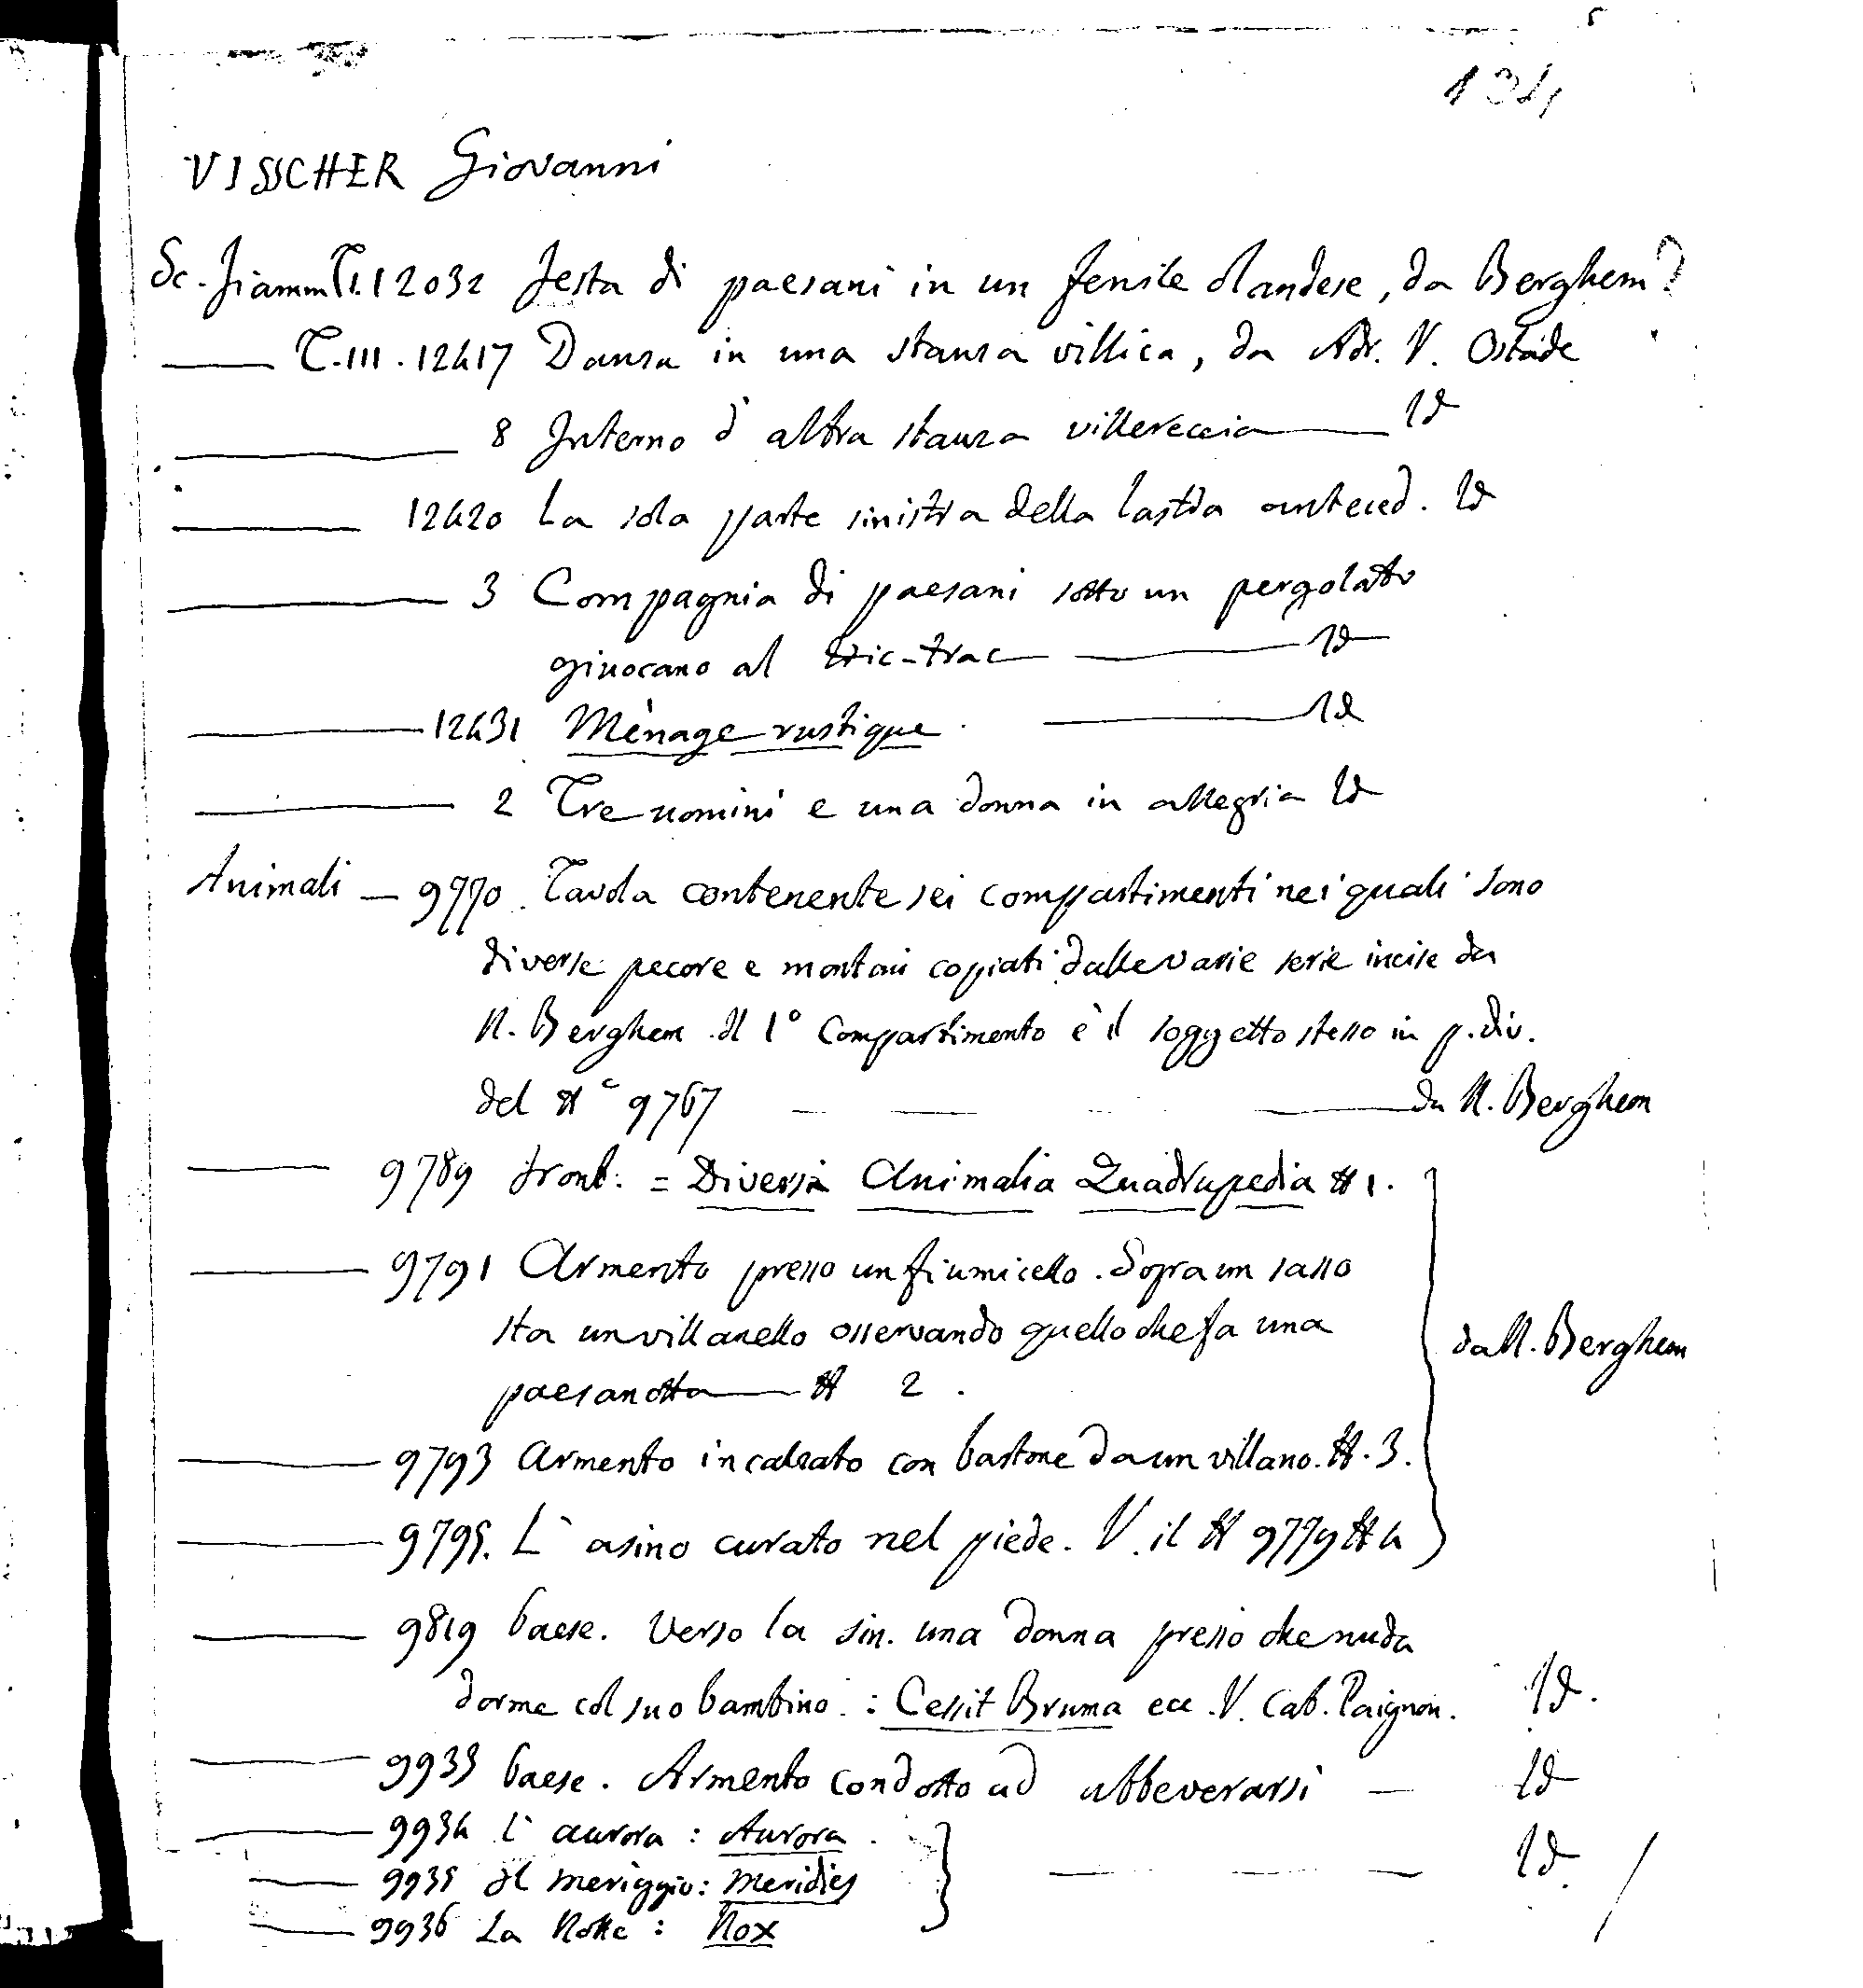 134
VISSCHER Giovanni
Sc. fiamm. T.I. 12032 Festa di paesani in un fenile olandese, da Berghem?
T.III. 12417 Danza in una stanza villica, da Adr. V. Ostade
8 Interno d'altra stanza villereccia Id
12420 La sola parte sinistra della lastra anteced. Id
3 Compagnia di paesani sotto un pergolato
giuocano al tric-trac Id
12431 Mènage rustique. Id
2 Tre uomini e una donna in allegria Id
Animali — 9770. Tavola contenente sei compartimenti nei quali sono
diverse pecore e montoni copiati dalle varie serie incise da
N. Berghem. Il 1° compartimento è il soggetto stesso in p. div.
del N° 9767 da N. Berghem
9789 Front. = Diversa Animalia Quadrupedia N 1.
9791 Armento presso un fiumicello. Sopra un sasso
sta un villanello osservando quello che fa una
paesanotta N 2.
da N. Berghem
9793 Armento incalzato con bastone da un villano. N. 3.
9795. L'asino curato nel piede. V. il N 9779 N 4
9819 Paese. Verso la sin. una donna presso che nuda
dorme col suo bambino: Cessit Bruma ecc. V. Cab. Paignon. Id.
9933 Paese. Armento condotto ad abbeverarsi — Id
9934 L'aurora: Aurora.
9935 Il meriggio: Meridies Id.
9936 La Notte: Nox